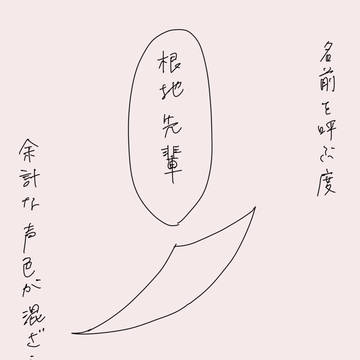 名前を呼ぶ度
根地先輩
余計な声色が混ざ